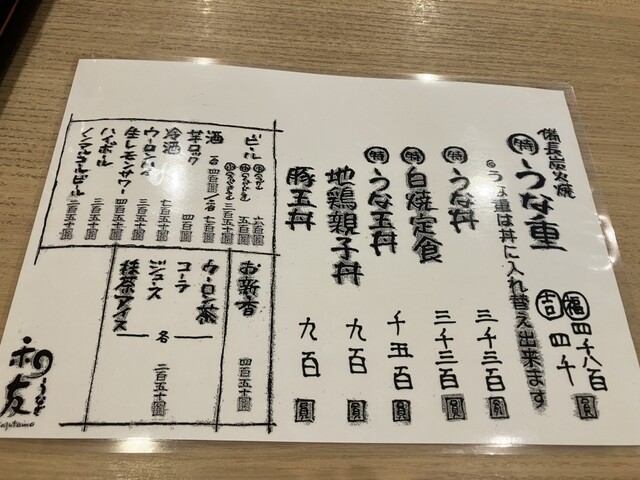 備長炭火焼
特 うな重 福 四千八百圓
吉 四千
うな重は丼に入れ替え出来ます
特 うな丼 三千三百圓
特 白焼定食 三千三百圓
特 うな玉丼 千五百圓
地鶏親子丼 九百圓
豚玉丼 九百圓
ビール
六百圓
五百圓
酒
芋ロック 四百圓
冷酒 七百五十圓
ウーロンハイ 三百五十圓
生レモンサワー 四百五十圓
ハイボール
ノンアルコールビール 三百五十圓
お新香 四百五十圓
ウーロン茶
コーラ
ジュース
抹茶アイス
各 二百五十圓
うなぎ
和友